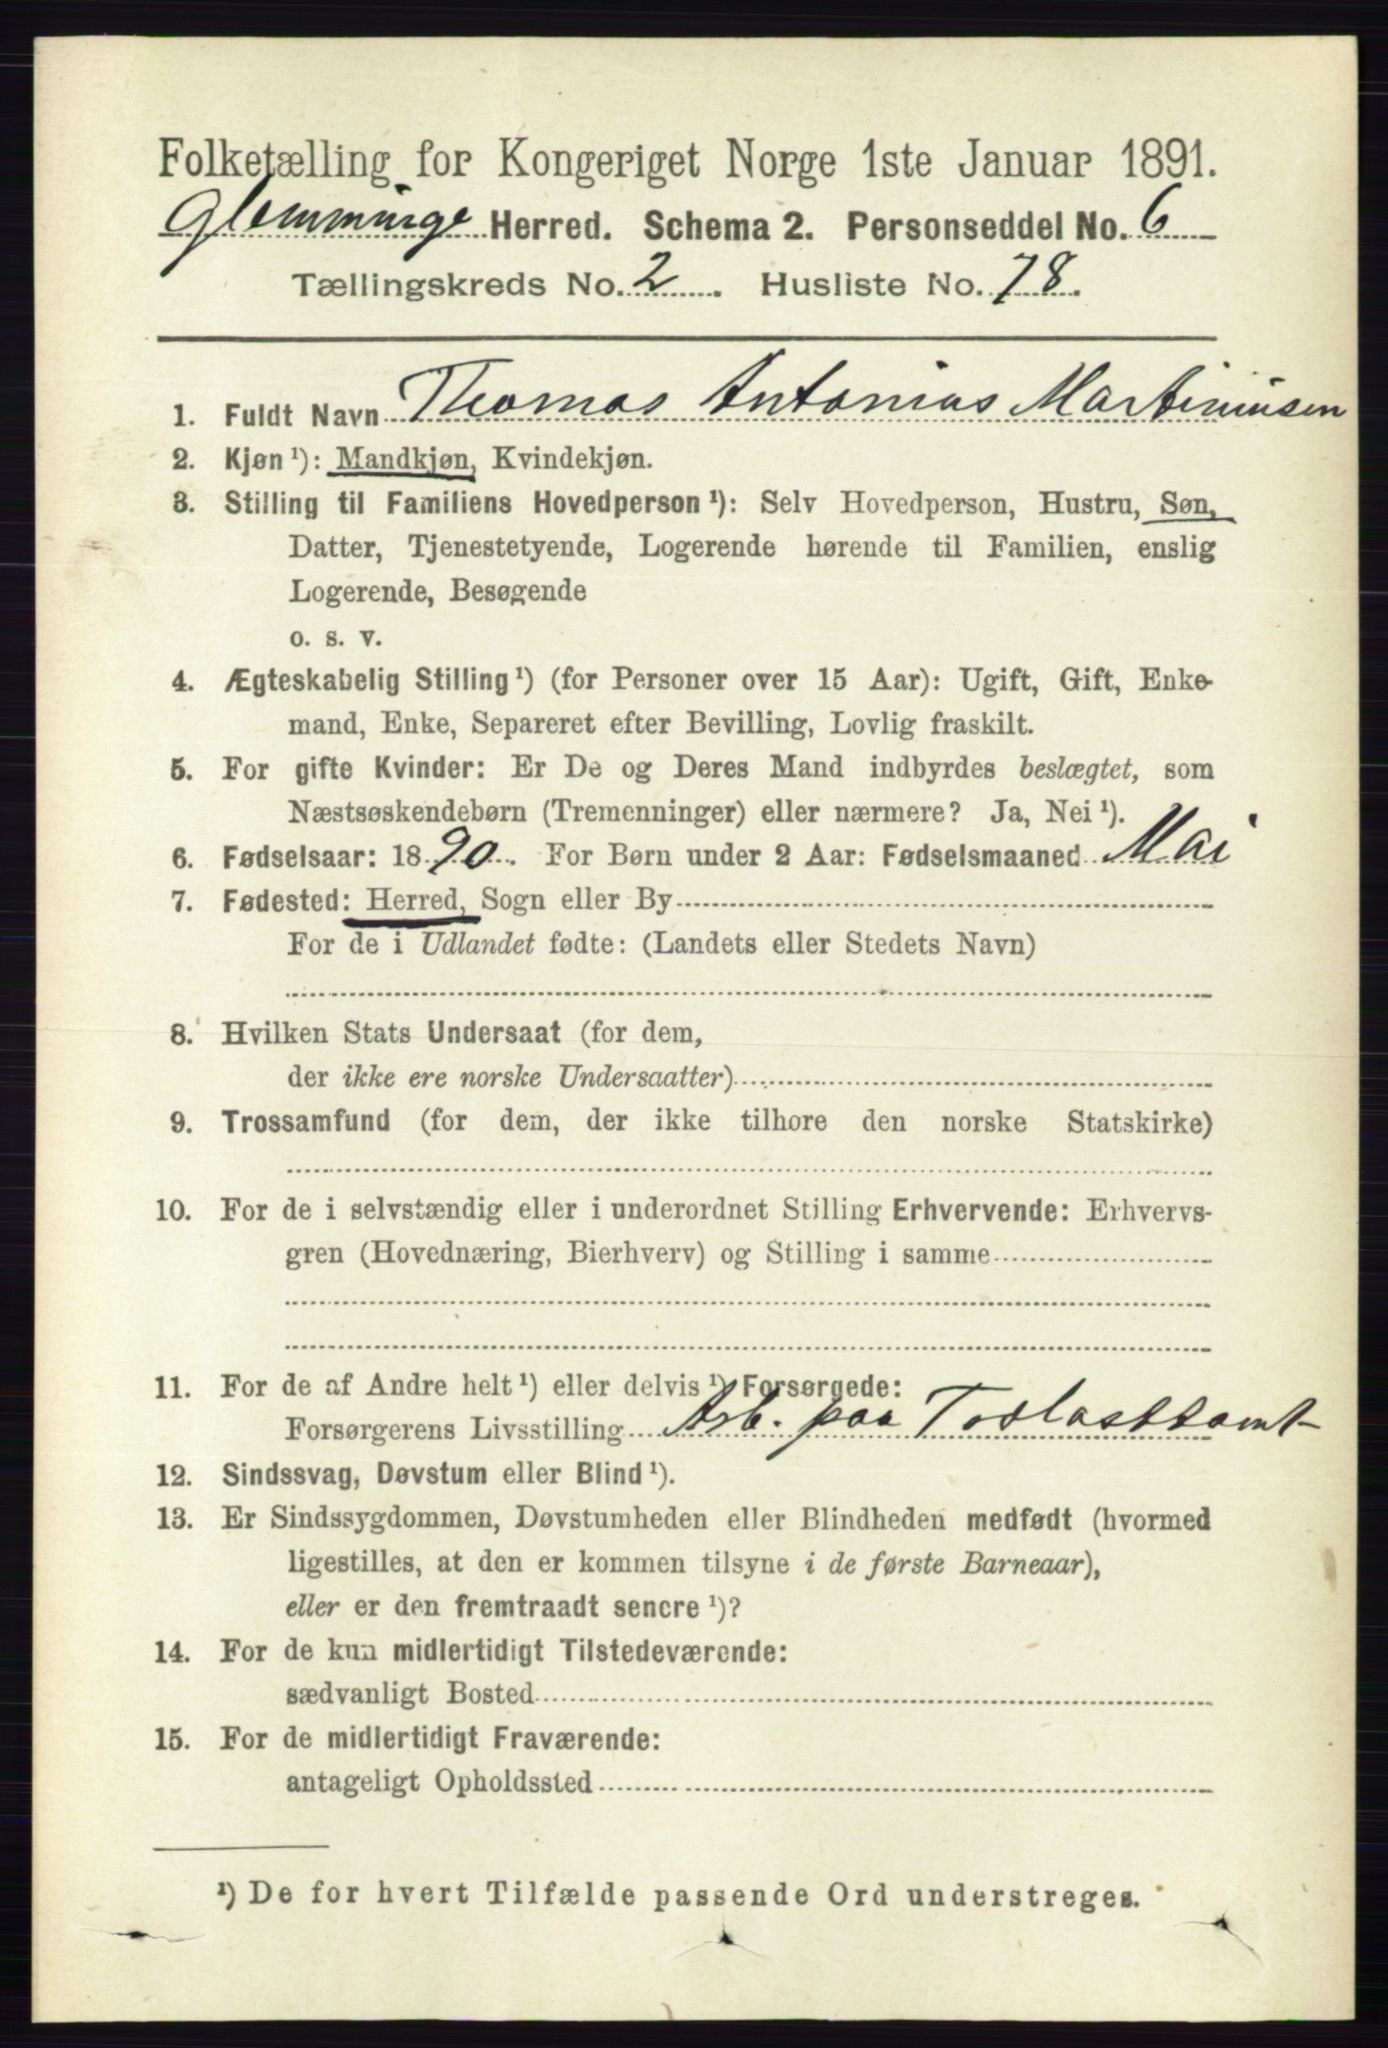 Folketælling for Kongeriget Norge 1ste Januar 1891.
Glemminge Herred. Schema 2. Personseddel No. 6
Tællingskreds No. 2. Husliste No. 78.
1. Fuldt Navn Thomas Antonius Martiniusen
2. Kjøn ¹): Mandkjøn, Kvindekjøn.
3. Stilling til Familiens Hovedperson ¹): Selv Hovedperson, Hustru, Søn,
Datter, Tjenestetyende, Logerende hørende til Familien, enslig
Logerende, Besøgende
o. s. v.
4. Ægteskabelig Stilling ¹) (for Personer over 15 Aar): Ugift, Gift, Enke-
mand, Enke, Separeret efter Bevilling, Lovlig fraskilt.
5. For gifte Kvinder: Er De og Deres Mand indbyrdes beslægtet, som
Næstsøskendebørn (Tremenninger) eller nærmere? Ja, Nei ¹).
6. Fødselsaar: 1890. For Børn under 2 Aar: Fødselsmaaned Mai
7. Fødested: Herred, Sogn eller By
For de i Udlandet fødte: (Landets eller Stedets Navn)
8. Hvilken Stats Undersaat (for dem,
der ikke ere norske Undersaatter)
9. Trossamfund (for dem, der ikke tilhøre den norske Statskirke)
10. For de i selvstændig eller i underordnet Stilling Erhvervende: Erhvervs-
gren (Hovednæring, Bierhverv) og Stilling i samme
11. For de af Andre helt ¹) eller delvis ¹) Forsørgede:
Forsørgerens Livsstilling Arb. paa Trælasttomt
12. Sindssvag, Døvstum eller Blind ¹).
13. Er Sindssygdommen, Døvstumheden eller Blindheden medfødt (hvormed
ligestilles, at den er kommen tilsyne i de første Barneaar),
eller er den fremtraadt senere ¹)?
14. For de kun midlertidigt Tilstedeværende:
sædvanligt Bosted
15. For de midlertidigt Fraværende:
antageligt Opholdssted
¹) De for hvert Tilfælde passende Ord understreges.